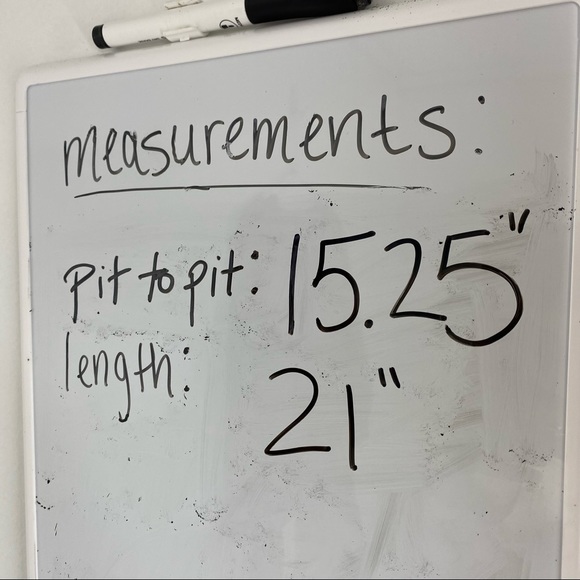 measurements:
pit to pit: 15.25"
length: 21"